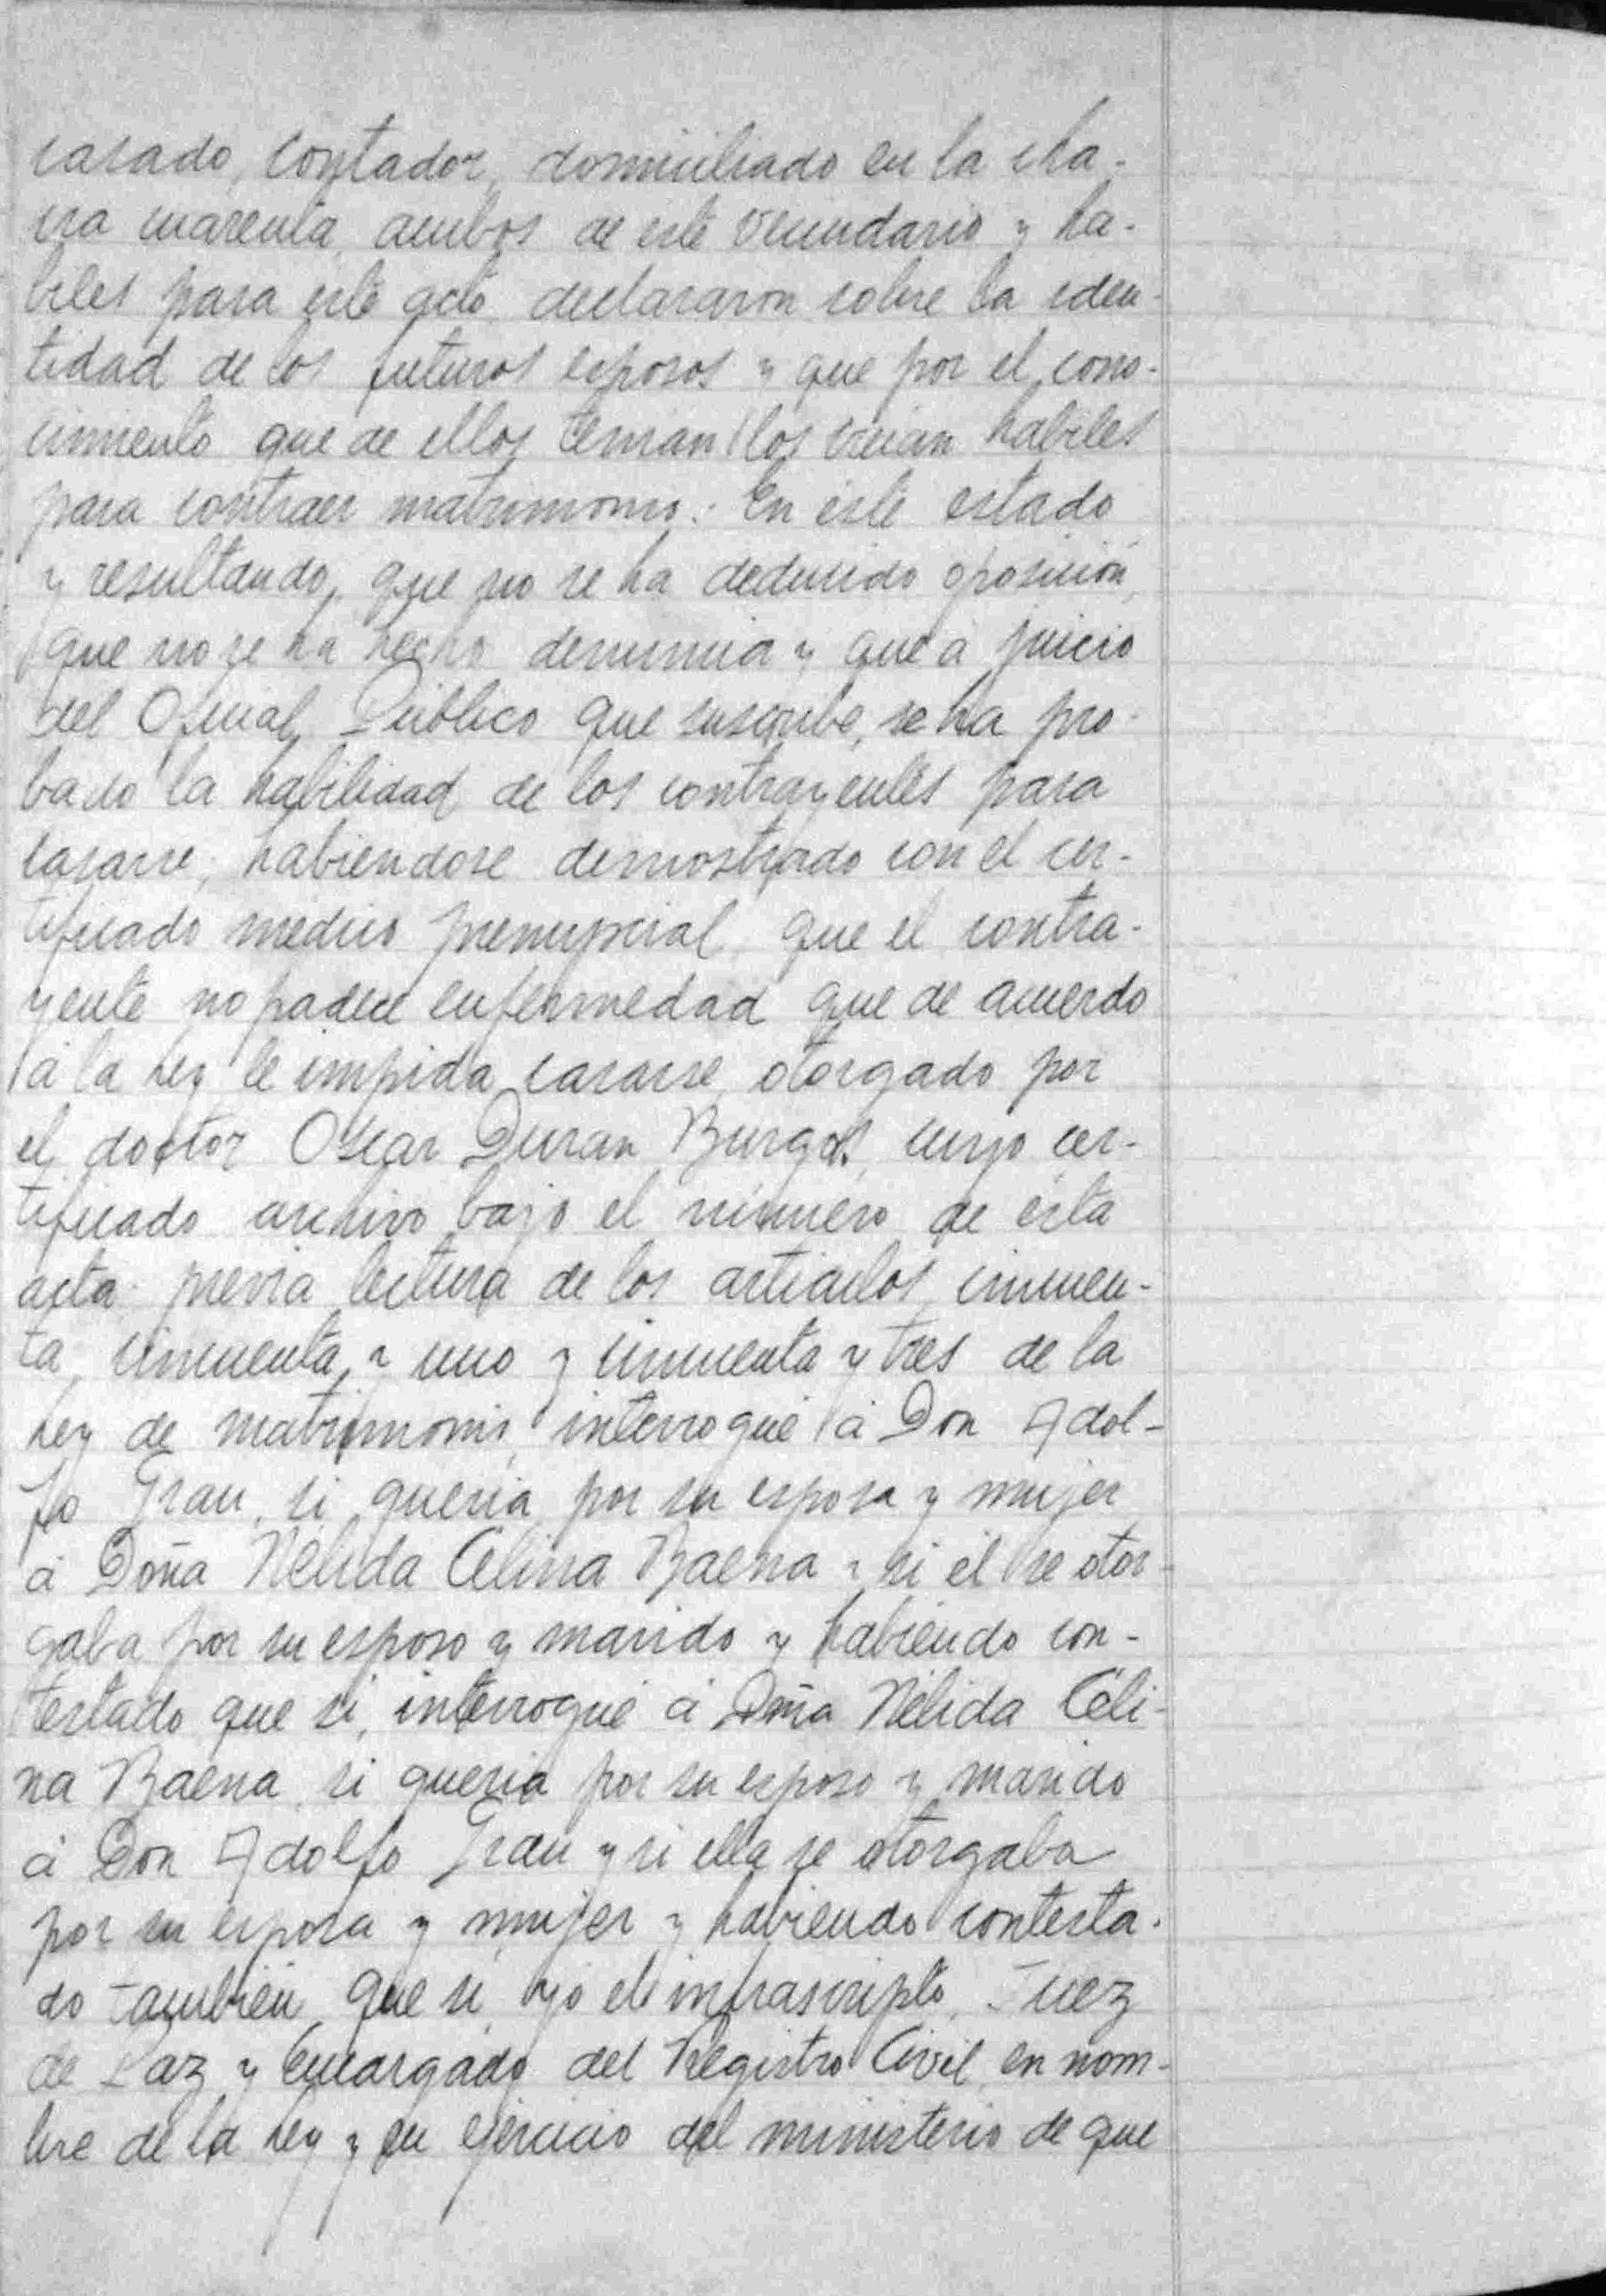 casado, contador, domiciliado en la cha-
cra cuarenta, ambos de este vecindario y ha-
biles para este acto, declararon sobre la iden-
tidad de los futuros esposos y que por el cono-
cimiento que de ellos tenian los creian habiles
para contraer matrimonio.- En este estado
y resultando, que no se ha deducido oposición,
que no se ha hecho denuncia y que á juicio
del Oficial Público que suscribe, se ha pro-
bado la habilidad de los contrayentes para
casarse, habiendose demostrado con el cer-
tificado medico prenupcial que el contra-
yente no padece enfermedad que de acuerdo
á la ley le impida casarse, otorgado por
el doctor Oscar Duran Burgos, cuyo cer-
tificado archivo bajo el número de esta
acta, previa lectura de los articulos cincuen-
ta, cincuenta y uno y cincuenta y tres de la
Ley de matrimonio, interrogué á Don Adol-
fo Grau, si queria por su esposa y mujer
á Doña Nélida Célina Baena y si él se otor-
gaba por su esposo y marido y habiendo con-
testado que si, interrogué á Doña Nélida Céli-
na Baena, si queria por su esposo y marido
á Don Adolfo Grau y si ella se otorgaba
por su esposa y mujer y habiendo contesta-
do tambien que si, yo el infrascripto, Juez
de Paz y Encargado del Registro Civil, en nom-
bre de la Ley y en ejercicio del ministerio de que